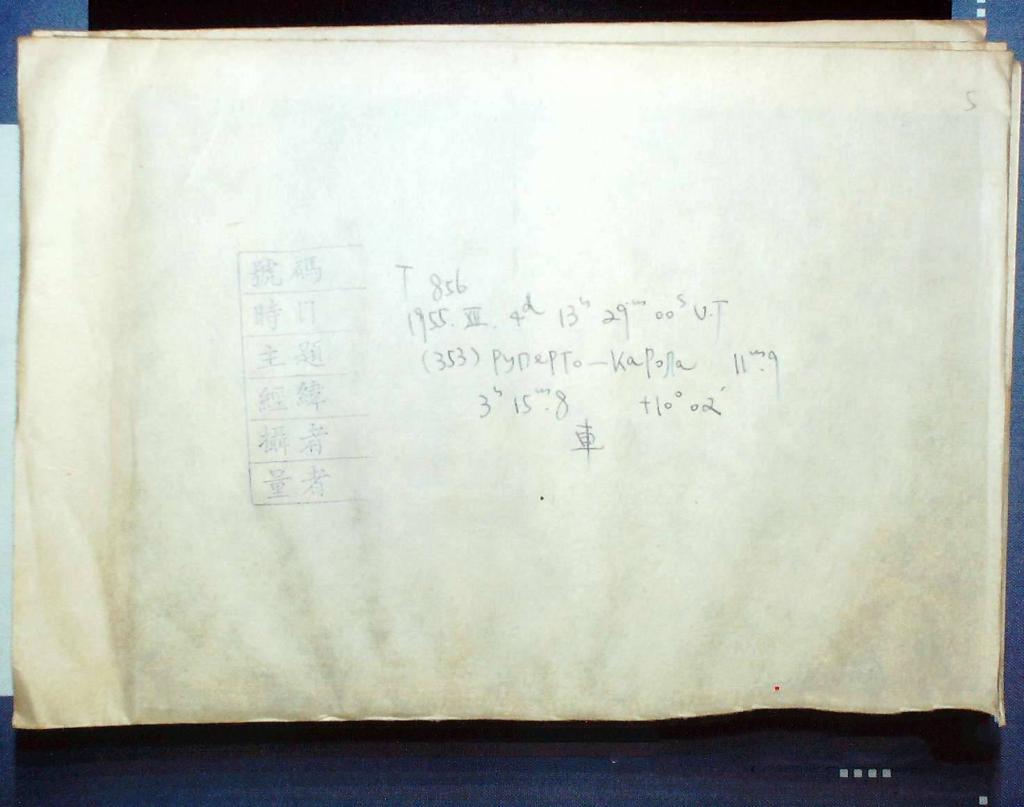 5
號碼 T 856
時日 1955. XII. 4ᵈ 13ʰ 29ᵐ 00ˢ U.T
主題 (353) Руперто-Карола 11ᵐ.9
經緯 3ʰ 15ᵐ.8 +10° 02′
攝者 車
量者